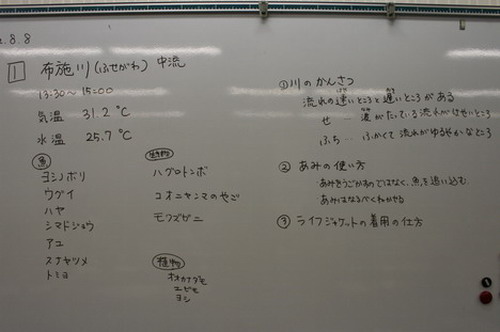 8.8
1 布施川(ふせがわ) 中流
13:30~15:00
気温 31.2℃
水温 25.7℃
魚
ヨシノボリ
ウグイ
ハヤ
シマドジョウ
アユ
スナヤツメ
トミヨ
動物
ハグロトンボ
コオニヤンマのやご
モクズガニ
植物
オオカナダモ
エビモ
ヨシ
①川のかんさつ
流れの速いところと遅いところがある
せ … 波がたっている流れがはやいところ
ふち … ふかくて流れがゆるやかなところ
② あみの使い方
あみをうごかすのではなく、魚を追い込む
あみはなるべくねかせる
③ ライフジャケットの着用の仕方